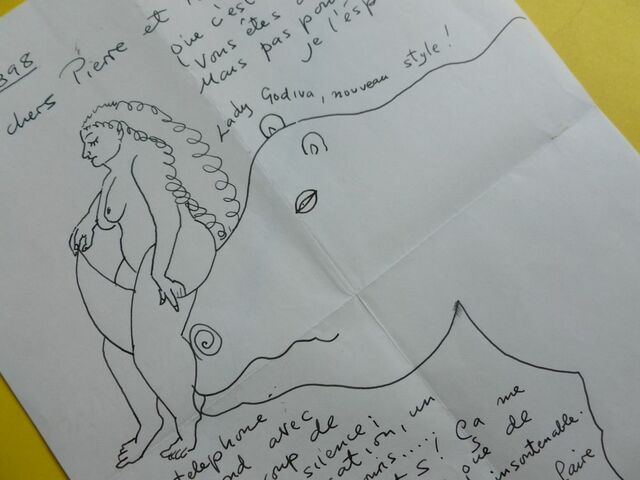 398
chers Pierre et
que c'est
(vous êtes
Mais pas pour
je l'esp
Lady Godiva, nouveau style!
telephone.
nd avec
coup de
silence;
cation, un
ours....; Ça me
TS! 5
que de
insoutenable.
faire